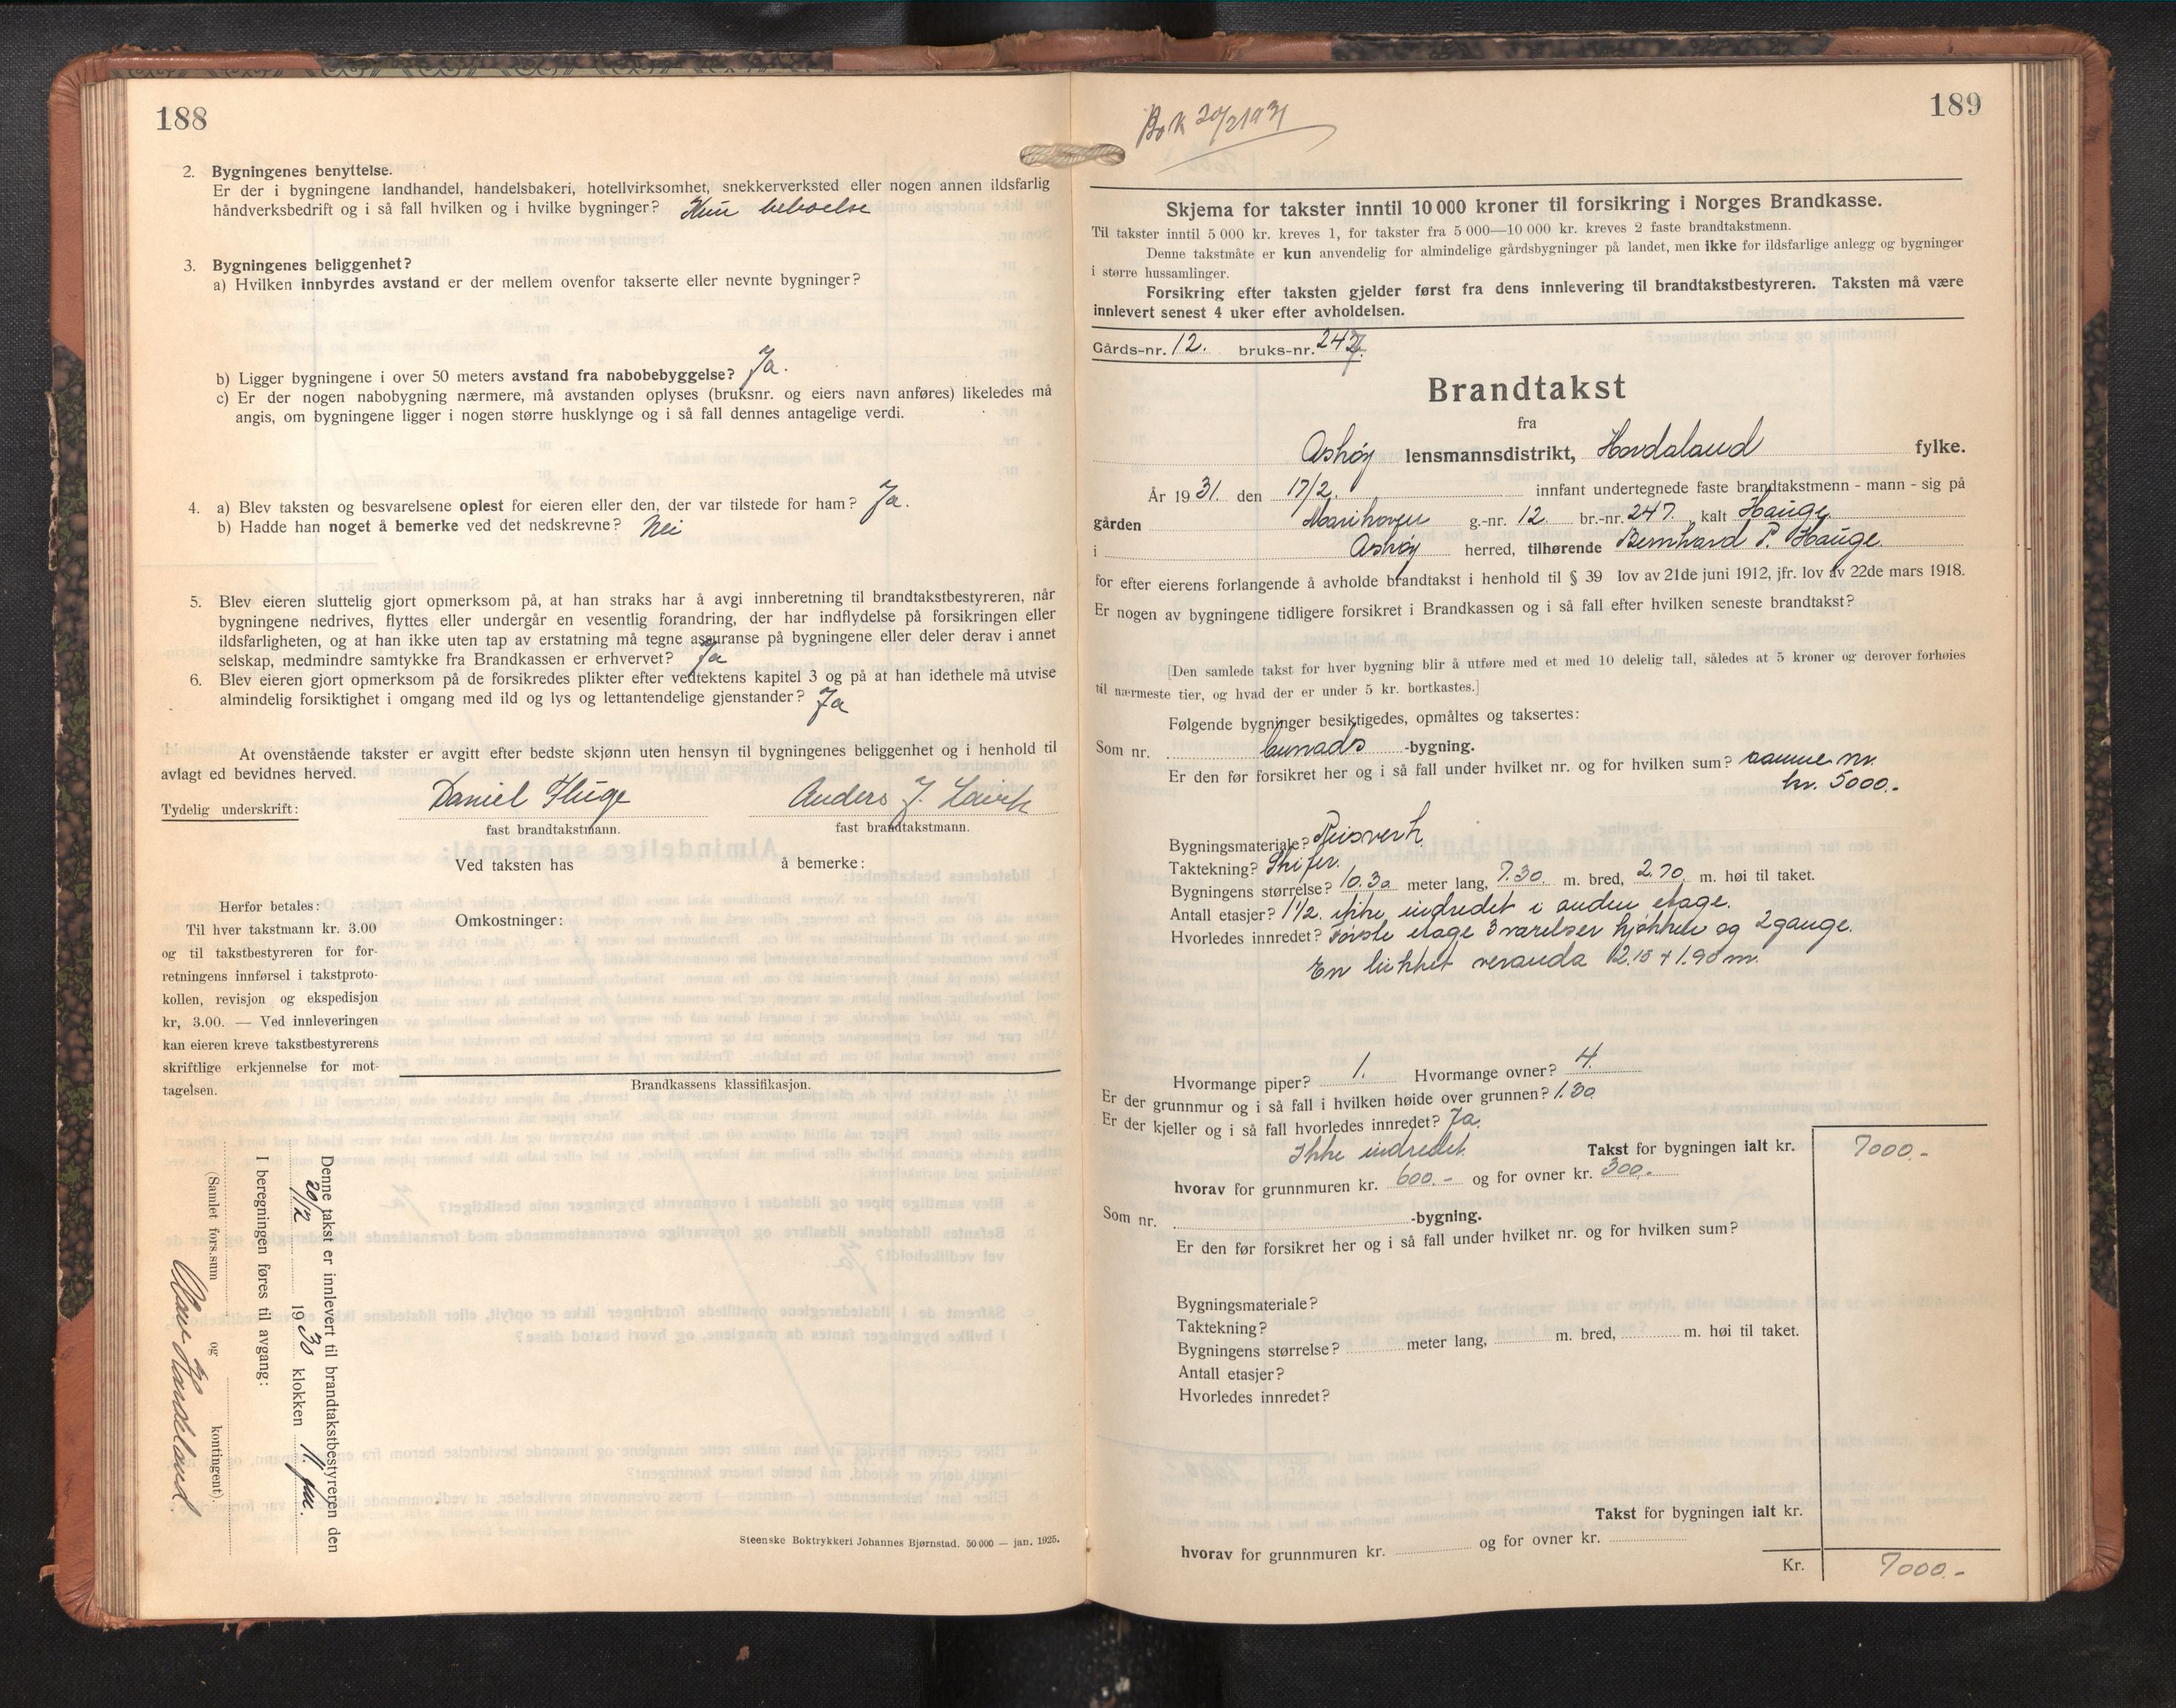 188
2. Bygningenes benyttelse.
Er der i bygningene landhandel, handelsbakeri, hotellvirksomhet, snekkerverksted eller nogen annen ildsfarlig
håndverksbedrift og i så fall hvilken og i hvilke bygninger? Kun beboelse
3. Bygningenes beliggenhet?
a) Hvilken innbyrdes avstand er der mellem ovenfor takserte eller nevnte bygninger?
b) Ligger bygningene i over 50 meters avstand fra nabobebyggelse? Ja.
c) Er der nogen nabobygning nærmere, må avstanden oplyses (bruksnr. og eiers navn anføres) likeledes må
angis, om bygningene ligger i nogen større husklynge og i så fall dennes antagelige verdi.
4. a) Blev taksten og besvarelsene oplest for eieren eller den, der var tilstede for ham? Ja.
b) Hadde han noget å bemerke ved det nedskrevne? Nei
5. Blev eieren sluttelig gjort opmerksom på, at han straks har å avgi innberetning til brandtakstbestyreren, når
bygningene nedrives, flyttes eller undergår en vesentlig forandring, der har indflydelse på forsikringen eller
ildsfarligheten, og at han ikke uten tap av erstatning må tegne assuranse på bygningene eller deler derav i annet
selskap, medmindre samtykke fra Brandkassen er erhvervet? Ja
6. Blev eieren gjort opmerksom på de forsikredes plikter efter vedtektens kapitel 3 og på at han idethele må utvise
almindelig forsiktighet i omgang med ild og lys og lettantendelige gjenstander? Ja
At ovenstående takster er avgitt efter bedste skjønn uten hensyn til bygningenes beliggenhet og i henhold til
avlagt ed bevidnes herved.
Tydelig underskrift: Daniel Fluge Anders J.
fast brandtakstmann. fast brandtakstmann.
Ved taksten has å bemerke:
Omkostninger:
Herfor betales:
Til hver takstmann kr. 3.00
og til takstbestyreren for for-
retningens innførsel i takstproto-
kollen, revisjon og ekspedisjon
kr, 3.00. — Ved innleveringen
kan eieren kreve takstbestyrerens
skriftlige erkjennelse for mot-
tagelsen.
Brandkassens klassifikasjon.
Denne takst er innlevert til brandtakstbestyreren den
20/2 1930 klokken 11 fm.
I beregningen føres til avgang:
(Samlet fors.sum og kontingent).
Olav Hordeland
Steenske Boktrykkeri Johannes Bjørnstad. 50 000 — jan. 1925.
189
Bok 20/2 1931
Skjema for takster inntil 10 000 kroner til forsikring i Norges Brandkasse.
Til takster inntil 5 000 kr. kreves 1, for takster fra 5 000—10 000 kr. kreves 2 faste brandtakstmenn.
Denne takstmåte er kun anvendelig for almindelige gårdsbygninger på landet, men ikke for ildsfarlige anlegg og bygninger
i større hussamlinger.
Forsikring efter taksten gjelder først fra dens innlevering til brandtakstbestyreren. Taksten må være
innlevert senest 4 uker efter avholdelsen.
Gårds-nr. 12. bruks-nr. 247.
Brandtakst
fra
Askøy lensmannsdistrikt, Hordaland fylke.
År 1931. den 17/2. innfant undertegnede faste brandtakstmenn - mann - sig på
gården Marihoven g.-nr. 12 br.-nr. 247. kalt Hauge
i Askøy herred, tilhørende Bernhard P. Hauge.
for efter eierens forlangende å avholde brandtakst i henhold til § 39 lov av 21de juni 1912, jfr. lov av 22de mars 1918.
Er nogen av bygningene tidligere forsikret i Brandkassen og i så fall efter hvilken seneste brandtakst?
[Den samlede takst for hver bygning blir å utføre med et med 10 delelig tall, således at 5 kroner og derover forhøies
til nærmeste tier, og hvad der er under 5 kr. bortkastes.]
Følgende bygninger besiktigedes, opmåltes og taksertes:
Som nr. -bygning.
Er den før forsikret her og i så fall under hvilket nr. og for hvilken sum? samme nr.
kr. 5000.-
Bygningsmateriale? Reisverk
Taktekning? Skifer.
Bygningens størrelse? 10.30 meter lang, 7.30 m. bred, 2.70 m. høi til taket.
Antall etasjer? 1 1/2. ikke indredet i anden etage.
Hvorledes innredet? Første etage 3 værelser kjøkken og 2 gange.
En lukket veranda 2.15 + 1.90 m.
Hvormange piper? 1. Hvormange ovner? 4.
Er der grunnmur og i så fall i hvilken høide over grunnen? 1.30
Er der kjeller og i så fall hvorledes innredet? Ja.
Ikke indredet. Takst for bygningen ialt kr. 7000.-
hvorav for grunnmuren kr. 600.- og for ovner kr. 300.-
Som nr. -bygning.
Er den før forsikret her og i så fall under hvilket nr. og for hvilken sum?
Bygningsmateriale?
Taktekning?
Bygningens størrelse? meter lang, m. bred, m. høi til taket.
Antall etasjer?
Hvorledes innredet?
Takst for bygningen ialt kr.
hvorav for grunnmuren kr. og for ovner kr.
Kr. 7000.-